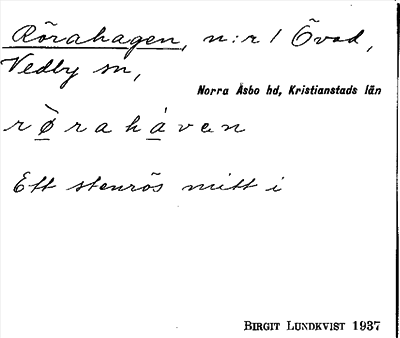 Rörahagen, n:r 1 Övad,
Vedby sn,
Norra Åsbo hd, Kristianstads län
rø̀rahávan
Ett stenrös mitt i
BIRGIT LUNDKVIST 1937